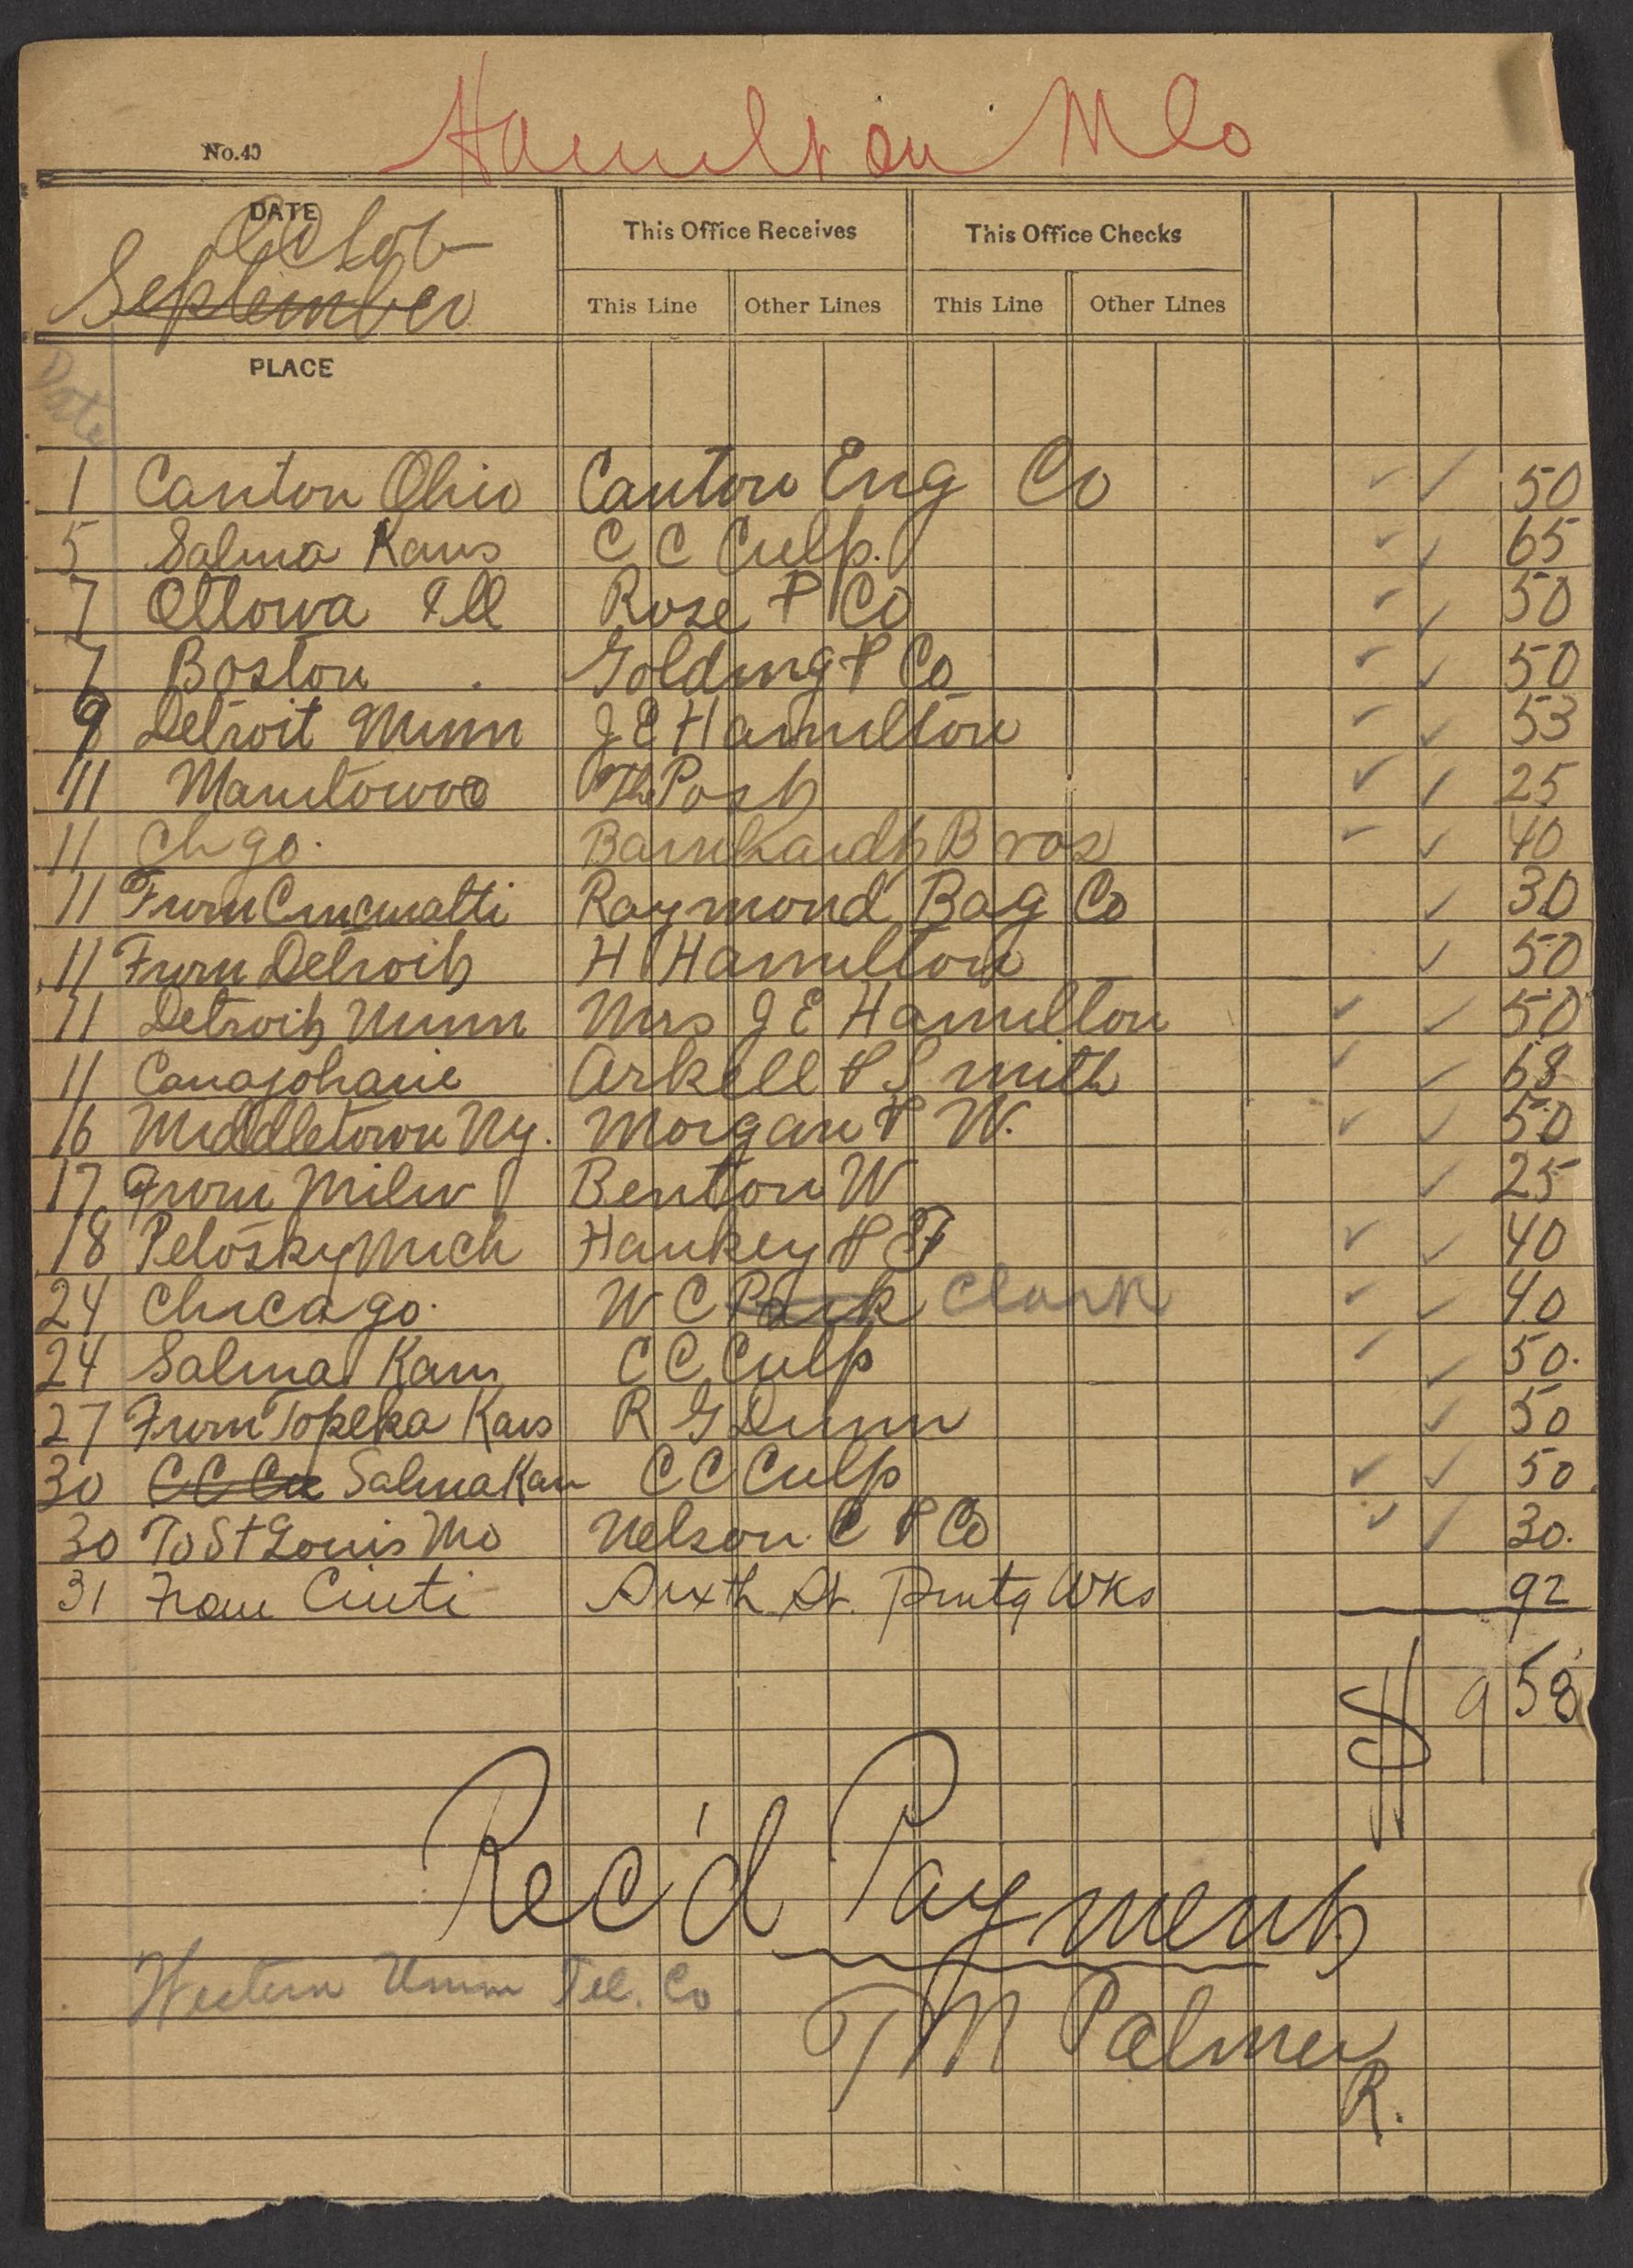 Hamilton Mfg Co
No. 40
DATE
Octob
September
This Office Receives
This Office Checks
This Line Other Lines This Line Other Lines
Date
PLACE
1 Canton Ohio Canton Eng Co ✓ ✓ 50
5 Salina Kans C C Culp. ✓ ✓ 65
7 Ottowa Ill Rose & Co ✓ ✓ 50
7 Boston Golding & Co ✓ ✓ 50
9 Detroit Minn J E Hamilton ✓ ✓ 53
11 Manitowoc The Post ✓ ✓ 25
11 Chgo. Barnhardt Bros ✓ ✓ 40
11 From Cincinatti Raymond Bag Co ✓ 30
11 From Detroit H Hamilton ✓ 50
11 Detroit Minn Mrs J E Hamilton ✓ ✓ 50
11 Canajoharie Arkell & Smith ✓ ✓ 68
16 Middletown Ny. Morgan & W. ✓ ✓ 50
17 From Milw Benton W ✓ 25
18 Petosky Mich Hankey & F ✓ ✓ 40
24 Chicago. W C Park Clark ✓ ✓ 40
24 Salina Kans C C Culp ✓ ✓ 50.
27 From Topeka Kans R G Dunn ✓ 50
30 C C Cu Salina Kan C C Culp ✓ ✓ 50
30 To St Louis Mo Nelson C & Co ✓ ✓ 30.
31 From Cinti Sixth St. Prntg Wks 92
$ 9 58
Rec'd Payment
Western Union Tel. Co
T M Palmer
R.